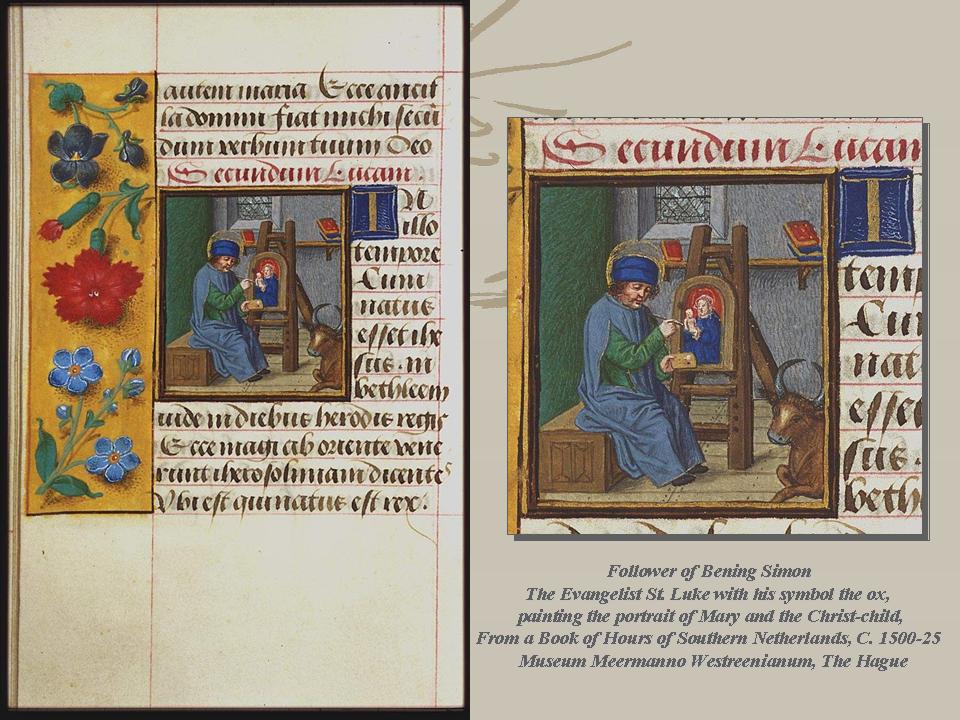 autem maria Ecce ancil
la domini fiat michi secu
dum verbum tuum Deo
Secundum Lucam.
IN
illo
tempore
Cum
natus
esset ihe
sus in
bethleem
iude in diebus herodis regis
Ecce magi ab oriente vene
runt iherosolimam dicentes
Vbi est qui natus est rex.
Secundum Lucam
I
temp
Cum
nat
esset
sus.
beth
Follower of Bening Simon
The Evangelist St. Luke with his symbol the ox,
painting the portrait of Mary and the Christ-child,
From a Book of Hours of Southern Netherlands, C. 1500-25
Museum Meermanno Westreenianum, The Hague